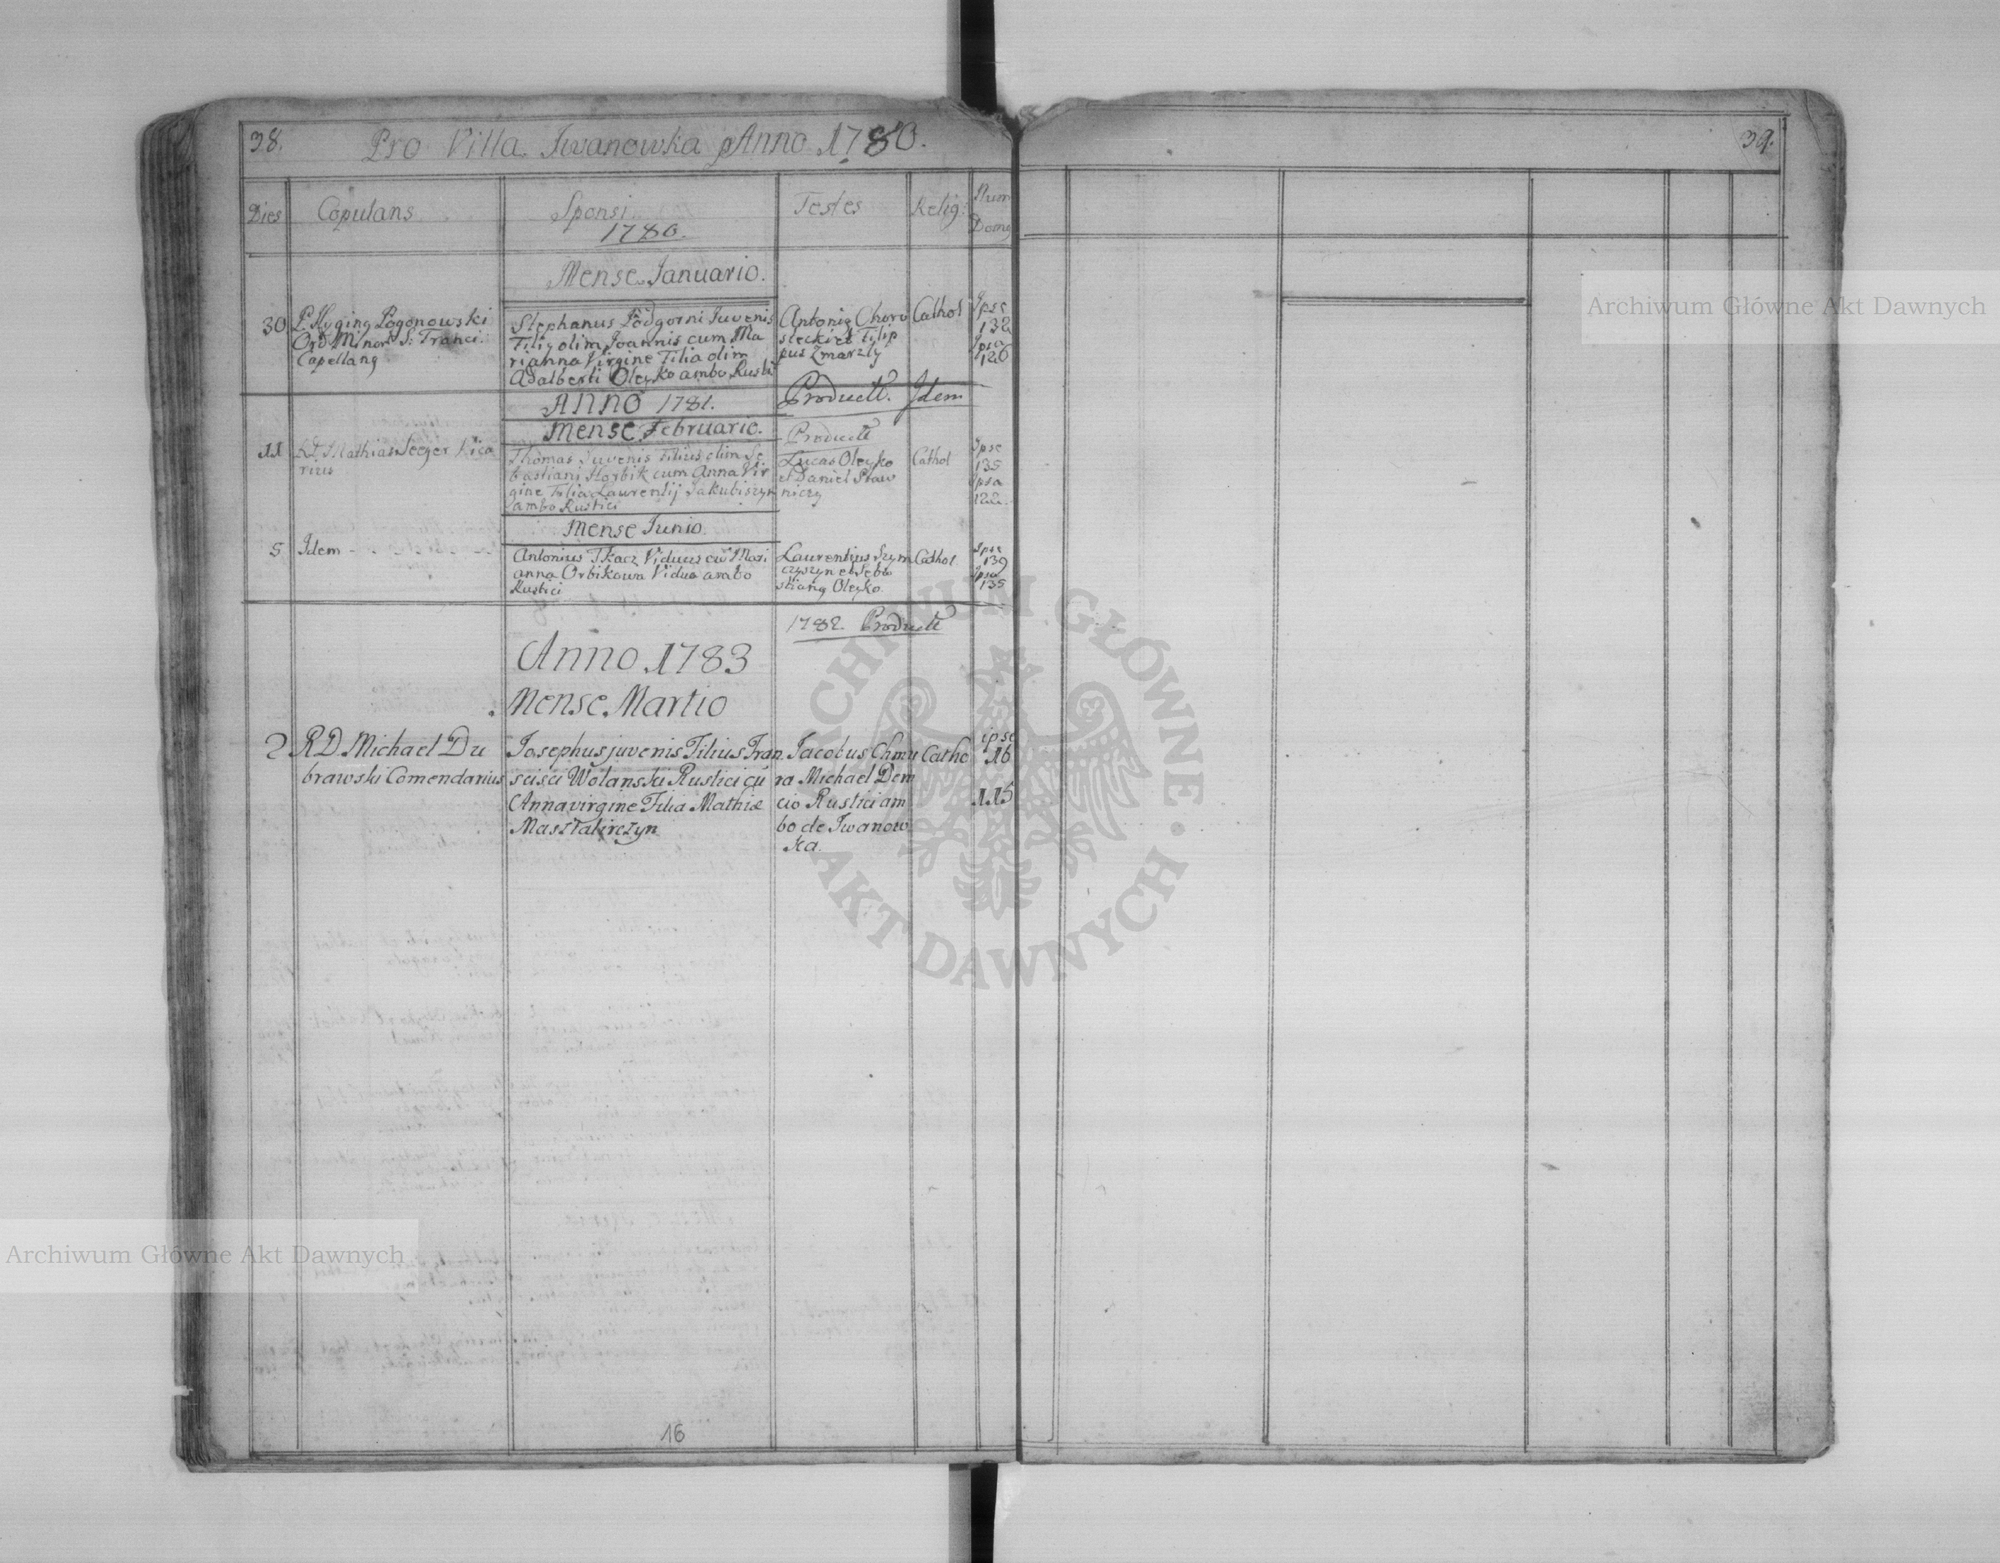 38.
Pro Villa Iwanowka Anno 1780.
39.
Dies
Copulans
Sponsi
1780.
Testes
Relig:
Num
Domg
Mense Januario.
30
P. Hyging Pogonowski
Ord Minor S: Franci:
Capellang
Stephanus Podgorni Juvenis
Filig olim Joannis cum Ma
rianna Virgine Filia olim
Adalberti Oleyko ambo Rusti
Antonig Choro
stecki et Filip
pus Zmarzly
Cathol
Ipse
132
Ipsa
126
ANNO 1781.
Productt.
Idem
Mense Februario.
Productt
11
Mathias Seeger Vica
rius
Thomas Juvenis Filius olim Se
bastiani Horbik cum Anna Vir
gine Filia Laurentij Jakubiszyn
ambo Rustici
Lucas Oleyko
et Daniel Staw
niczy
Cathol
Ipse
135
Ipsa
122
Mense Junio.
5
Idem
Antonius Tkacz Viduus cu Mari
anna Orbikowa Vidua ambo
Rustici
Laurentius Szym
czyszyn et Seba
stiang Oleyko
Cathol
Ipse
139
Ipsa
135
1782. Productt
Anno 1783
Mense Martio
2
R.D. Michael Du
brawski Comendarius
Josephus juvenis Filius Fran
scisci Wolanski Rustici cu
Anna virgine Filia Mathiæ
Masztalirczyn
Jacobus Chmu
ra Michael Dem
cio Rustici am
bo de Iwanow
ka.
Catho
ipse
16
115
16
Archiwum Główne Akt Dawnych
Archiwum Główne Akt Dawnych
ARCHIWUM GŁÓWNE
AKT DAWNYCH